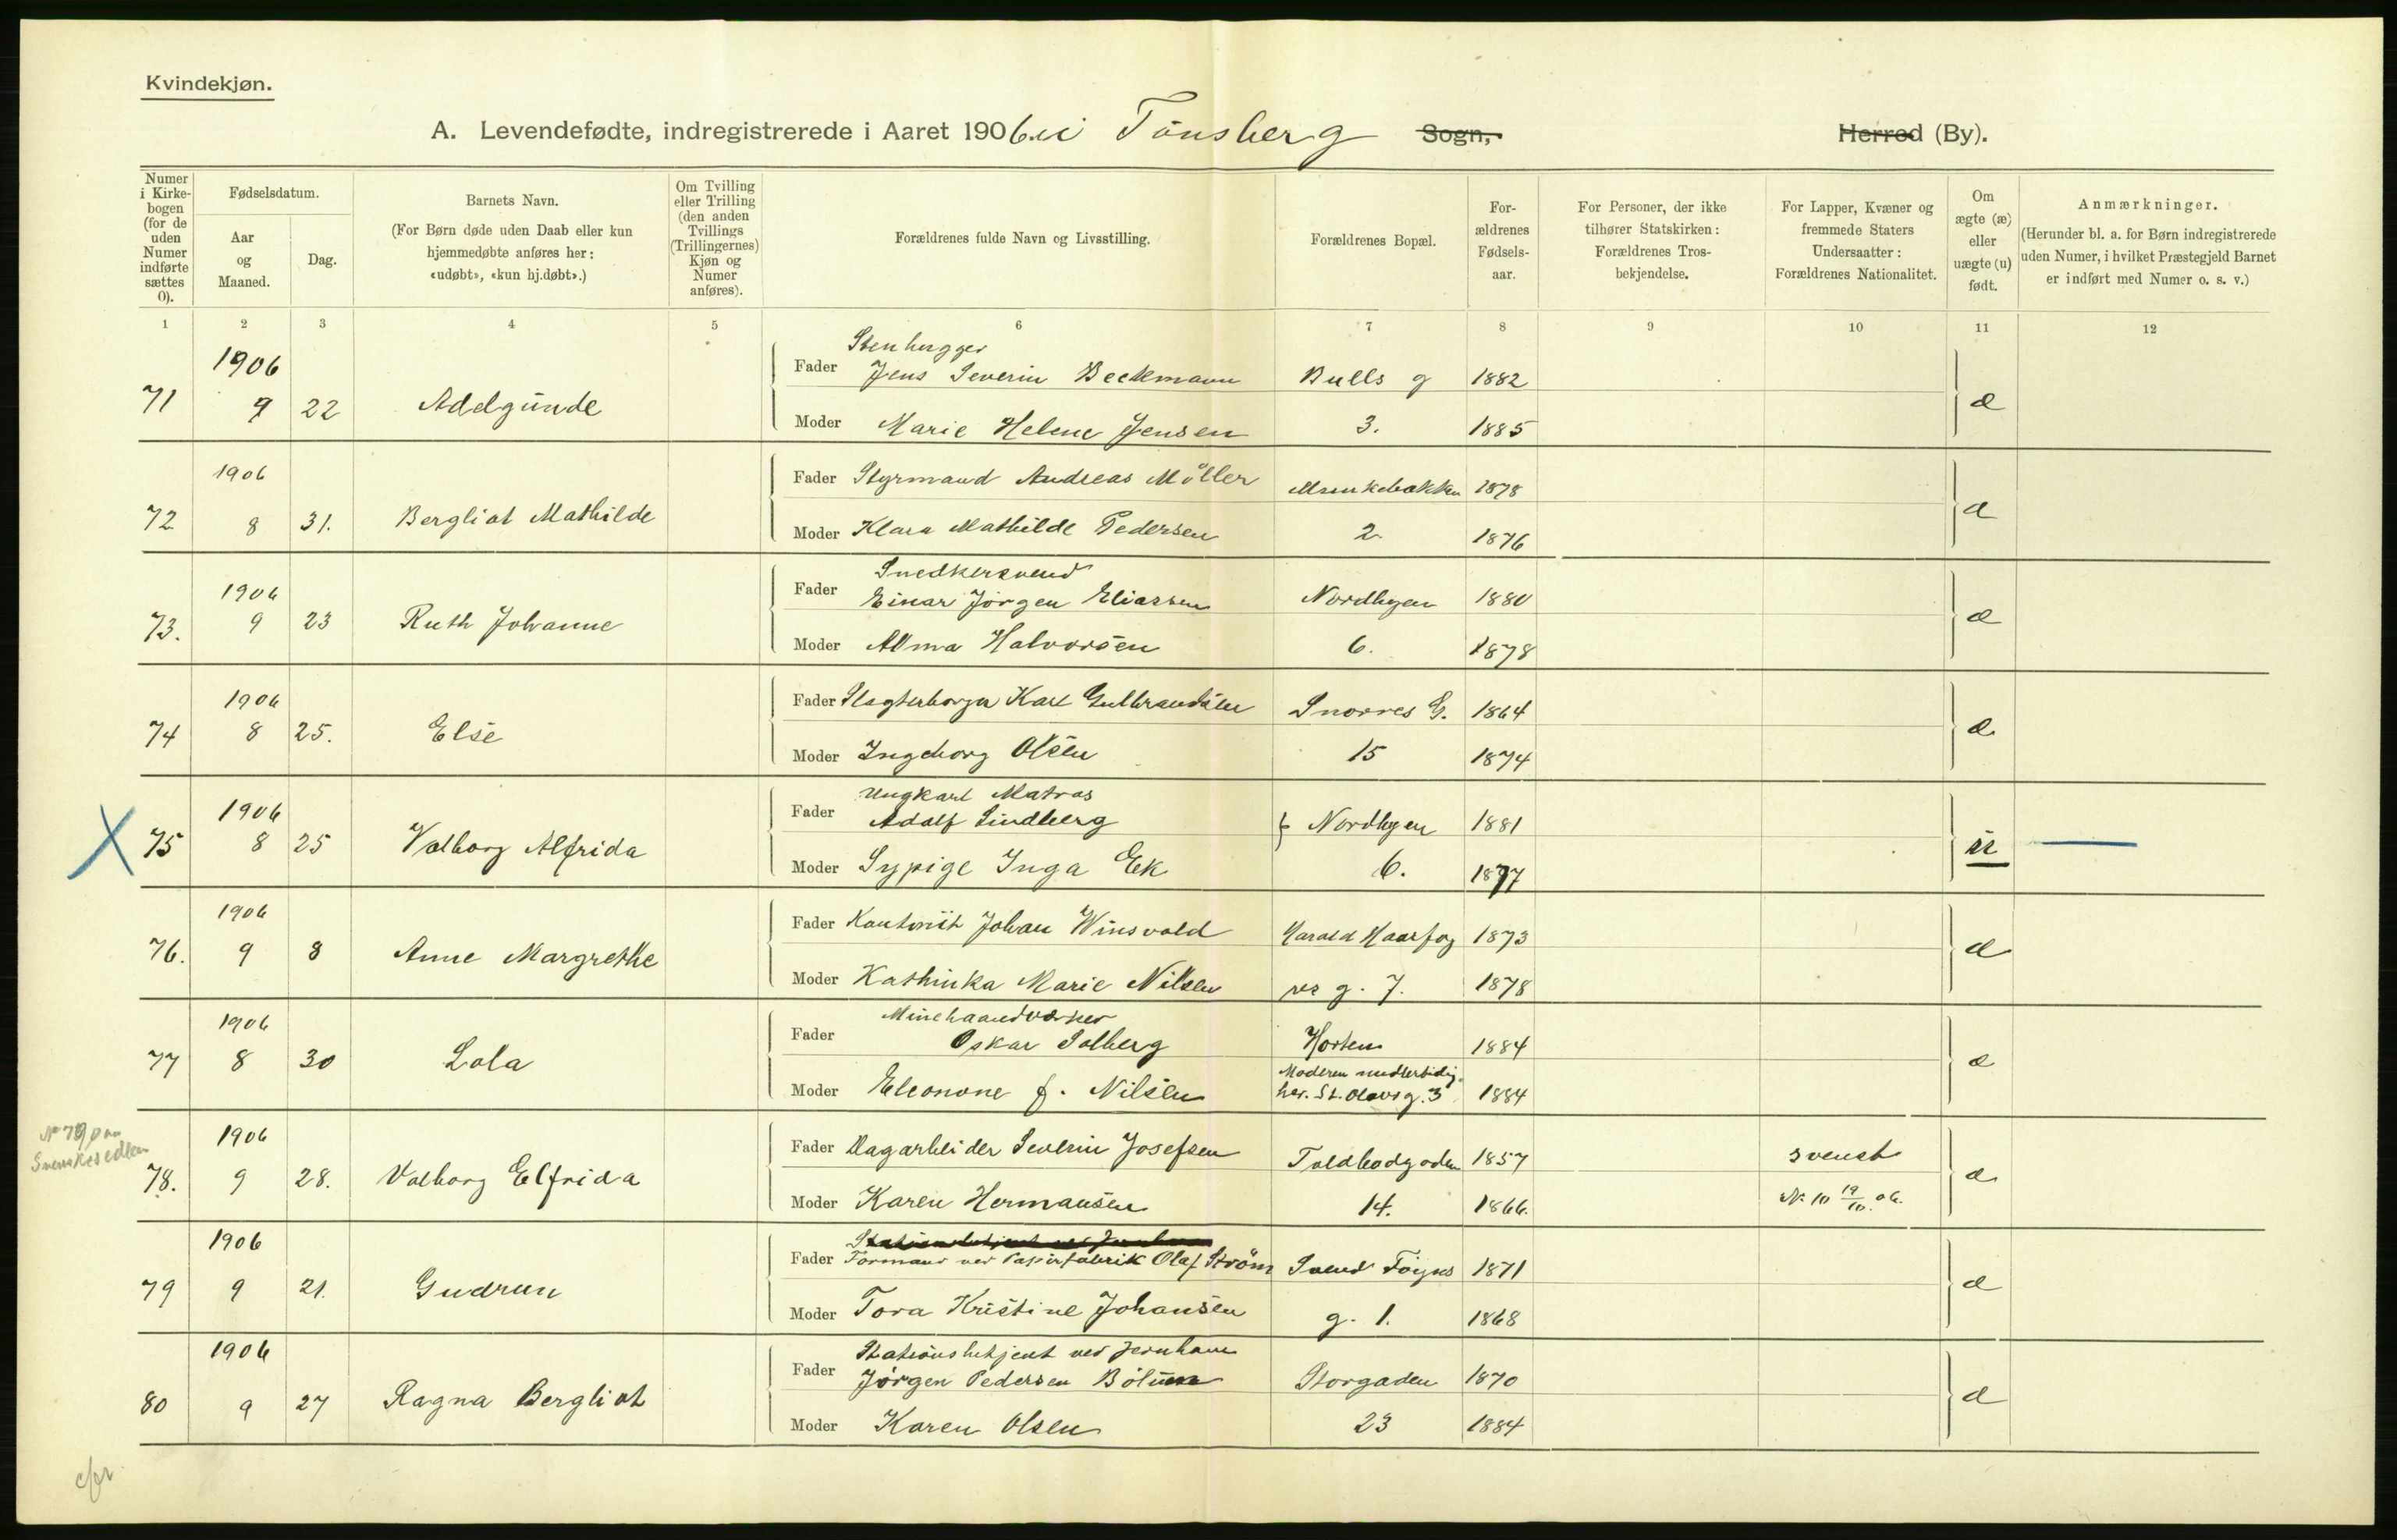 Kvindekjøn.
A. Levendefødte, indregistrerede i Aaret 1906. i Tönsberg Sogn, Herred (By).
Numer i Kirkebogen (for de uden Numer indførte sættes 0).
Fødselsdatum.
Aar og Maaned.
Dag.
Barnets Navn.
(For Børn døde uden Daab eller kun hjemmedøbte anføres her: «udøbt», «kun hj.døbt».)
Om Tvilling eller Trilling (den anden Tvillings (Trillingernes) Kjøn og Numer anføres).
Forældrenes fulde Navn og Livsstilling.
Forældrenes Bopæl.
Forældrenes Fødselsaar.
For Personer, der ikke tilhører Statskirken: Forældrenes Trosbekjendelse.
For Lapper, Kvæner og fremmede Staters Undersaatter: Forældrenes Nationalitet.
Om ægte (æ) eller uægte (u) født.
Anmærkninger.
(Herunder bl. a. for Børn indregistrerede uden Numer, i hvilket Præstegjeld Barnet er indført med Numer o. s. v.)
1 2 3 4 5 6 7 8 9 10 11 12
1906 Stenhugger
71 9 22 Adelgunde Fader Jens Severin Beckmann Bulls g 1882 æ
Moder Marie Helene Jensen 3. 1885
1906 Fader Styrmand Andreas Möller Munkebakken 1878
72 8 31. Bergliot Mathilde Moder Klara Mathilde Pedersen 2. 1876 æ
Snedkersvend
1906 Fader Einar Jörgen Eliassen Nordbyen 1880
73. 9 23 Ruth Johanne Moder Alma Halvorsen 6. 1878 æ
1906 Fader Slagterborger Karl Gulbrandsen Snorres G. 1864
74 8 25. Else Moder Ingeborg Olsen 15 1874 æ
Ungkarl Matros
1906 Fader Adolf Lindberg Nordbyen 1881
75 8 25 Valborg Alfrida Moder Sypige Inga Ek 6. 1877 u
1906 Fader Kontorist Johan Winsvold Harald Haarfag 1873
76. 9 8 Anne Margrethe Moder Kathinka Marie Nilsen res g. 7. 1878 æ
Minehaandverker
1906 Fader Oskar Solberg Horten 1884
77 8 30 Lola Moderen midlertidig
Moder Eleonone f. Nilsen her. St. Olavs g. 3 1884 æ
No 79 paa
Svenskesedlen
1906 Fader Dagarbeider Severin Josefsen Toldbodgaden 1857 svensk
78. 9 28. Valborg Elfrida Moder Karen Hermansen 14. 1866. No 10 19/10.06. æ
1906 Fader Formand ved Papirfabrik Olaf Ström Svend Föyns 1871
79 9 21. Gudrun Moder Tora Kristine Johansen g. 1. 1868 æ
Stationsbetjent ved Jernbane
1906 Fader Jörgen Pedersen Storgaden 1870
80 9 27 Ragna Bergliot Moder Karen Olsen 23 1884 æ